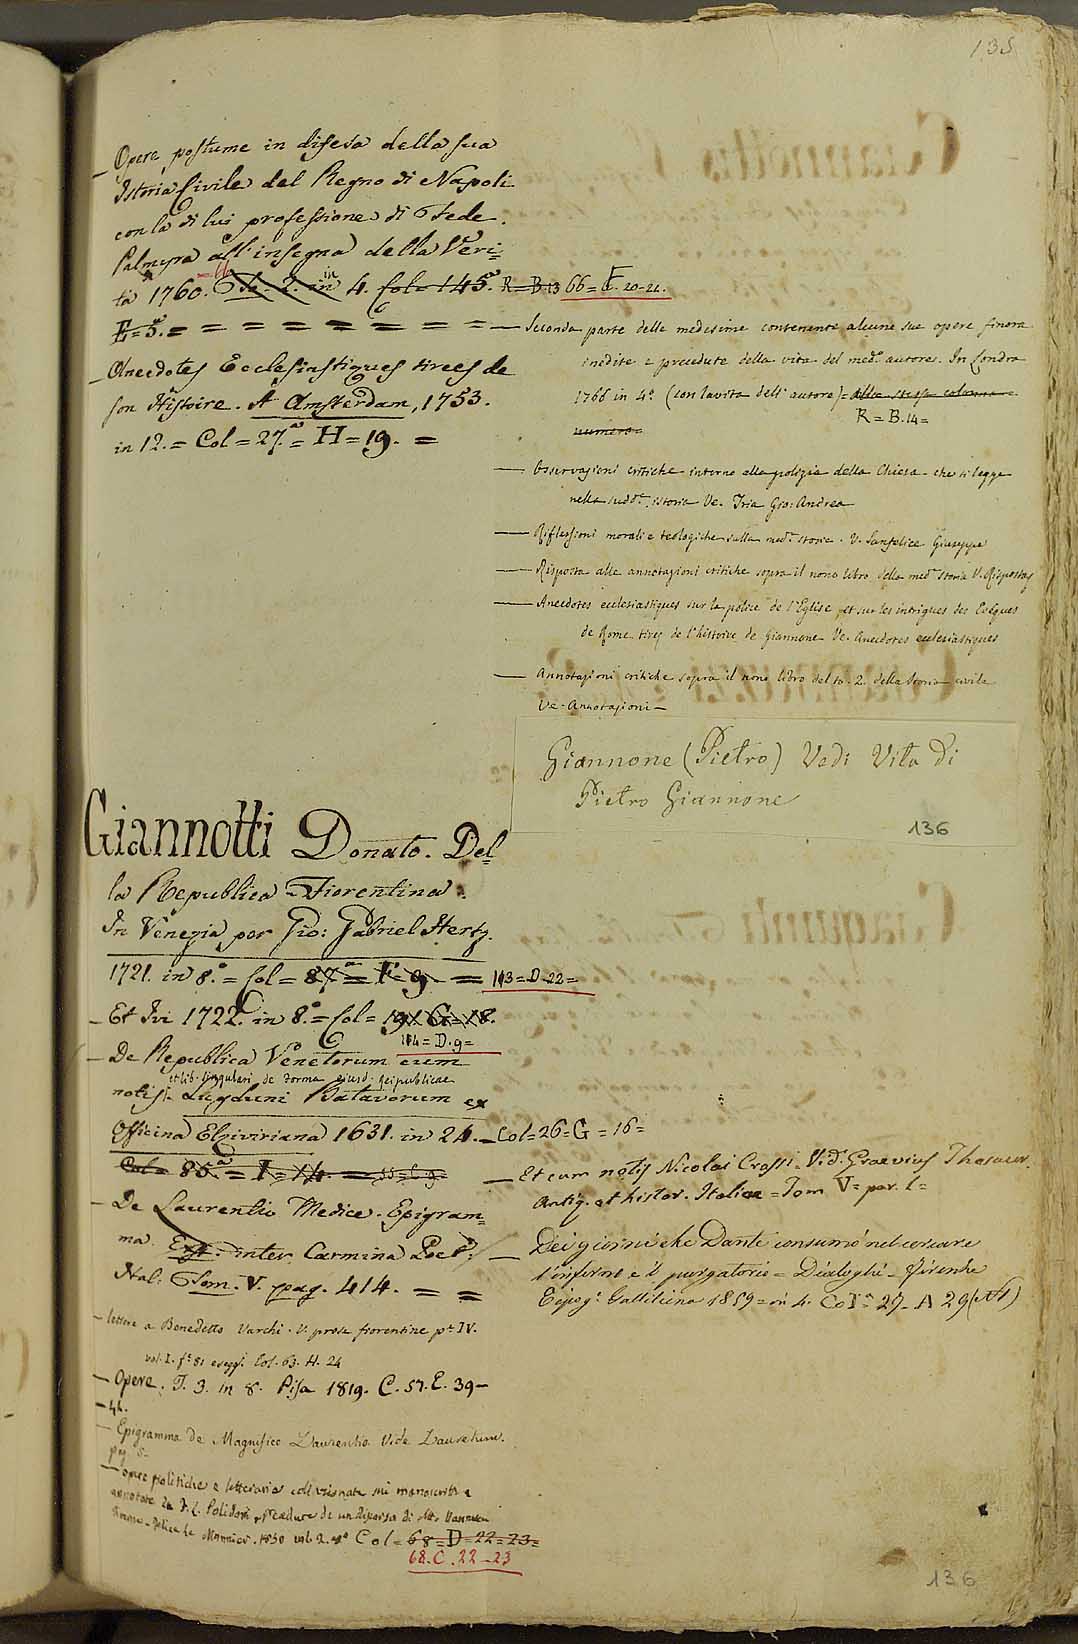 135
_ Opere postume in difesa della sua
Istoria Civile del Regno di Napoli
con la di lui professione di Fede.
Palmyra all'insegna della Veri=
tà 1760. To. 2. in 4. Col= 145. R=B.13 66=E. 20-21.
E=5.= = = = = = = =
_ Anecdotes Ecclesiastiques tirees de
son Histoire. A Amsterdam, 1753.
in 12. = Col=27.a = H=19. =
— Seconda parte delle medesime contenente alcune sue opere finora
inedite e precedute della vita del med.o autore. In Londra
1766 in 4.o (con la vita dell'autore)= alla stessa colonna e
R=B.14=
numero=
— Osservazioni critiche intorno alla polizia della Chiesa che si legge
nella sudd.a istoria Ve. Tria Gio: Andrea
— Riflessioni morali e teologiche sulla med.a storia. V. Sanfelice Giuseppe
— Risposta alle annotazioni critiche sopra il nono libro della med.a storia V. Risposta
— Anecdotes ecclesiastiques sur la police de l'Eglise, et sur les intrigues des Evêques
de Rome tirés de l'histoire de Giannone Ve. Anecdotes ecclesiastiques
— Annotazioni critiche sopra il nono libro del to. 2. della Storia civile
Ve. Annotazioni—
Giannone (Pietro) Vedi Vita di
Pietro Giannone
136
Giannotti Donato. Del=
la Republica Fiorentina.
In Venezia per Gio: Gabriel Hertz.
1721. in 8.o = Col= 87.a = I=9. = 113=D-22=
_ Et Ivi 1722. in 8.o = Col= 19. G=18.
114=D.9=
_ De Republica Venetorum cum
et lib. singulari de forma ejusd. Reipublicae
notis. Lugduni Batavorum ex
Officina Elziviriana 1631. in 24. _ Col=26=G=16=
Col= 85.a = I=14. =
_ Et cum notis Nicolai Crassi. Vid. Graevius Thesaur.
Antiq. et histor. Italiae = Tom V= par. 1=
_ De Laurentio Medice. Epigram=
ma. Ext. inter Carmina Poet:
Ital: Tom. V. pag. 414. = =
_ Dei giorni che Dante consumò nel cercare
l'inferno e il purgatorio = Dialoghi = Firenze
Tipog.a Galileiana 1859 = in 4. Col.a 27- A 29
_ lettere a Benedetto Varchi. V. prose fiorentine p.te IV.
vol. I. f.o 81 e segg. Col. 63. H. 24
— Opere. T. 3. in 8. Pisa 1819. C. 57. E. 39—
— 41.
— Epigramma de Magnifico Laurentio Vide Laurentium.
pag 5-
— opere politiche e letterarie collazionate sui manoscritti e
annotate da F. L. Polidori precedute da un discorso di Atto Vannucci
Firenze - Felice Le Monnier. 1850 vol. 2. 12.o Col=68=D=22=23=
68. C. 22_23
136